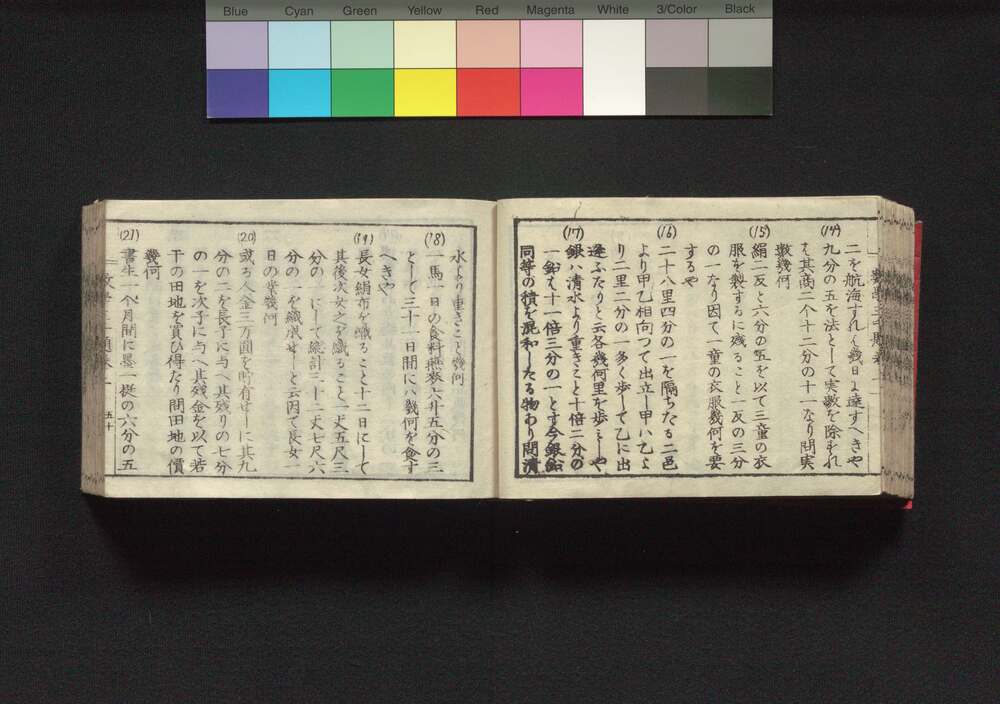 Blue Cyan Green Yellow Red Magenta White 3/Color Black
二を航海すれハ幾日よ達すへきや
(14)
九分の五を法として実數を除すれ
ハ其商二个十二分の十一なり問実
數幾何
(15)
絹二反と六分の五を以て三童の衣
服を製するに残ること一反の三分
の一なり因て一童の衣服幾何を要
するや
(16)
二十八里四分の一を隔ちたる二邑
より甲乙相向つて出立し甲ハ乙よ
り二里二分の一多く歩して乙に出
逢ふたりと云各幾何里を歩ミしや
(17)
銀ハ清水より重きこと十倍二分の
一鉛ハ十一倍三分の一とす今銀鉛
同等の積を混和したる物あり問清
水より重きこと幾何
(18)
一馬一日の食料燕麥六升五分の三
として三十一日間にハ幾何を食す
へきや
(19)
長女絹布を織ること十二日にして
其後次女之を織ること一丈五尺三
分の一にして総計三十二丈七尺六
分の一を織成せしと云因て長女一
日の業幾何
(20)
或る人金三万圓を所有せしに其九
分の二を長子に与へ其残りの七分
の一を次子に与へ其残金を以て若
干の田地を買ひ得たり問田地の價
幾何
(21)
書生一个月間に墨一挺の六分の五
五十